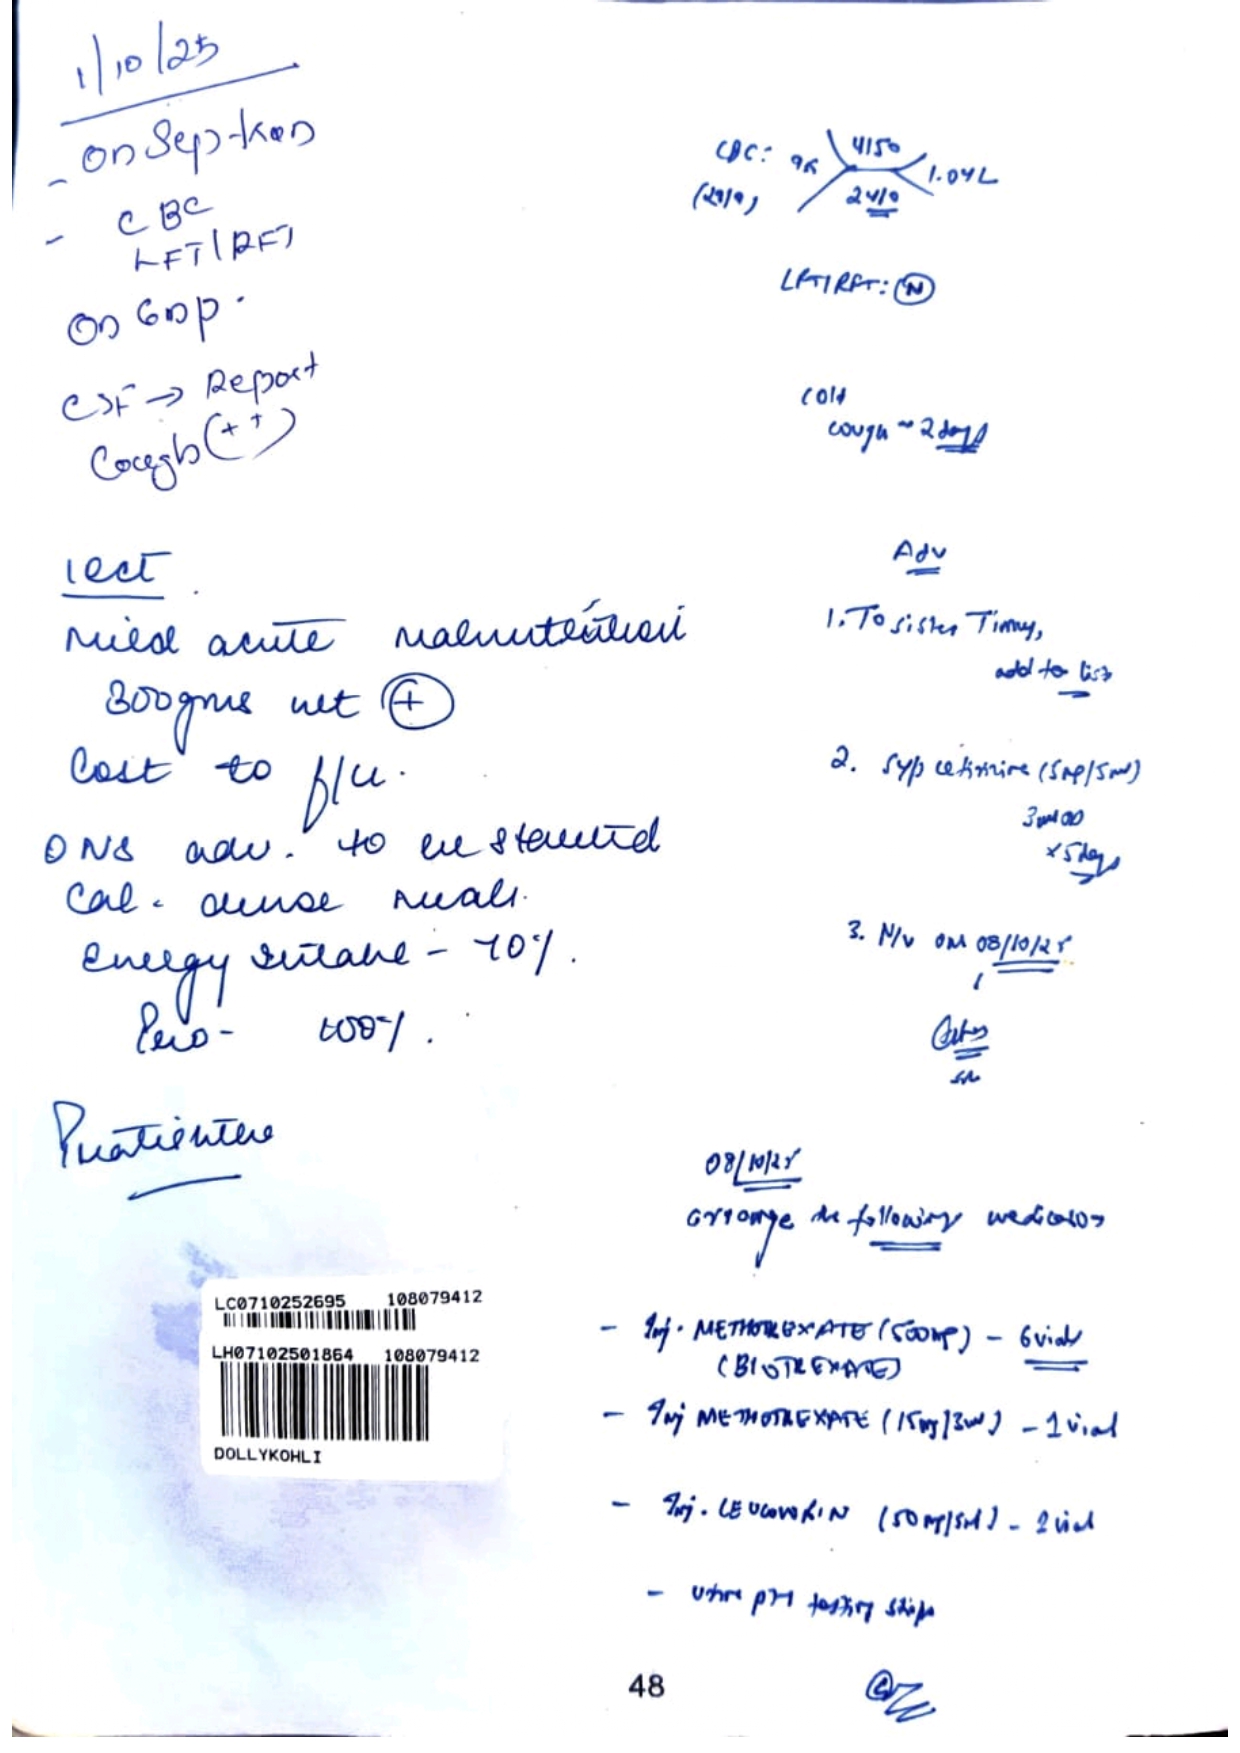 1/10/25
- On Septran
- CBC
LFT/RFT
On 6mp.
CSF → Report
Cough (++)
CBC: 4150
(29/9) 2410 1.04L
LFT/RFT: (N)
Cold
cough ~ 2 days
Adv
1. To sister Timmy,
add to list
2. Syp cetirizine (5mg/5ml)
3ml OD
x 5 days
3. N/v on 08/10/25
Mild acute malnutrition
300gms wt (+)
Lost to f/u.
ONS adv. to be started
Cal. dense meals.
Energy intake - 70%.
Pro- 100%.
LC0710252695 108079412
LH07102501864 108079412
DOLLYKOHLI
08/10/25
arrange the following medications
- Inj. METHOTREXATE (500mg) - 6 vials
(BIOTREXATE)
- Inj METHOTREXATE (15mg/3ml) - 1 vial
- Inj. LEUCOVORIN (50mg/5ml) - 2 vial
- Urine pH testing strips
48